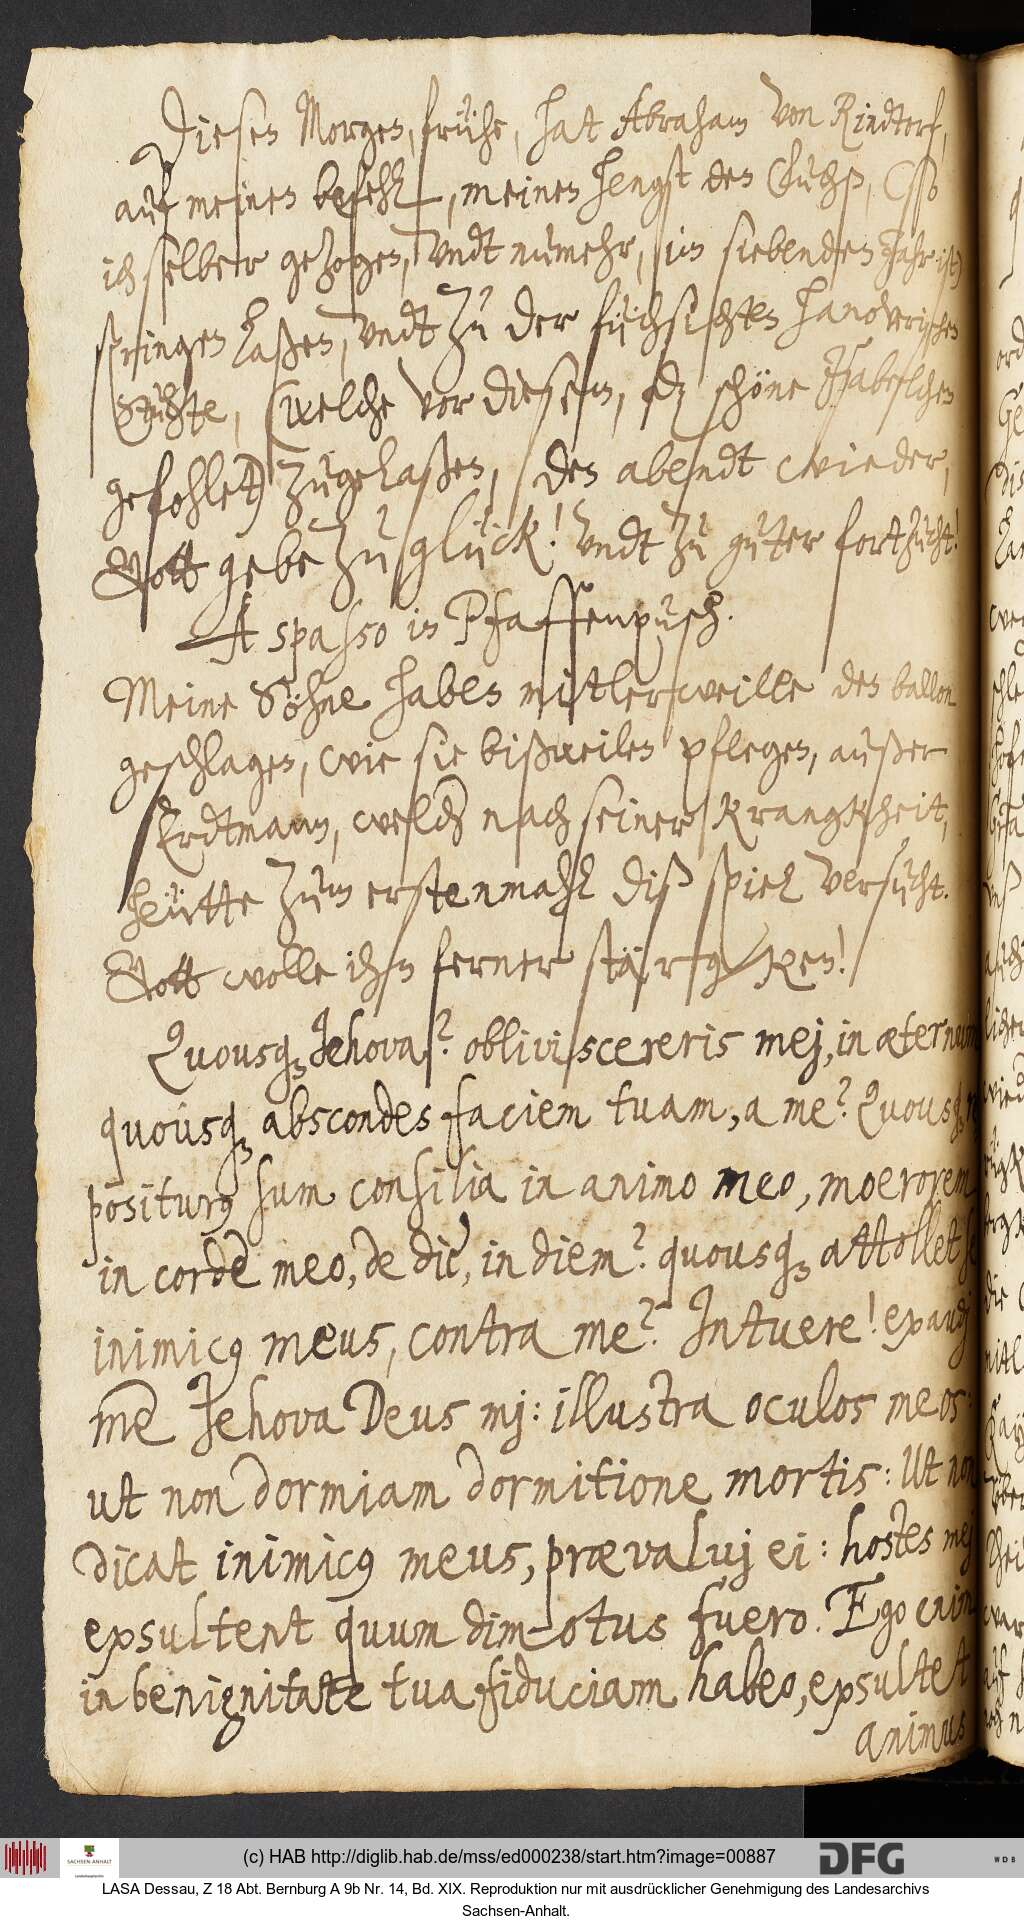 Diesen Morgen, frühe, hat Abraham von Rindtorf,
auf meinen befehl, meinen hengst den Fuchß, (so
ich selber gezogen, vndt numehr, im siebenden Jahr ist)
springen laßen, vndt zu der füchsischen hanoverischen
Stuhte, (welche vor diesem, dz schöne Isabelchen
gefohlet) zugelaßen, den abendt wieder,
Gott gebe zu glück! vndt zu guter fortzucht!
A spasso in Pfaffenpusch.
Meine Söhne haben mittlerweille den ballon
geschlagen, wie sie bißweilen pflegen, außer
Erdtmann, welcher nach seiner Krangkheit,
heütte zum erstenmahl diß spiel versucht.
Gott wolle ihn ferner stärgken!
Quousq3 Jehova? obliviscereris mej, in æternum
quousq3 abscondes faciem tuam, a me? Quousq3
positurus sum consilia in animo meo, moerorem
in corde meo, de die, in diem? quousq3 attollet se
inimicus meus, contra me? Intuere! exaudj
me Jehova Deus mj: illustra oculos meos:
ut non dormiam dormitione mortis: Ut non
dicat inimicus meus, prævaluj ei: hostes mej
exsultent quum dimotus fuero. Ego enim
in benignitate tua fiduciam habeo, exsultet
animus
(c) HAB http://diglib.hab.de/mss/ed000238/start.htm?image=00887
SACHSEN-ANHALT
DFG
WDB
LASA Dessau, Z 18 Abt. Bernburg A 9b Nr. 14, Bd. XIX. Reproduktion nur mit ausdrücklicher Genehmigung des Landesarchivs
Sachsen-Anhalt.